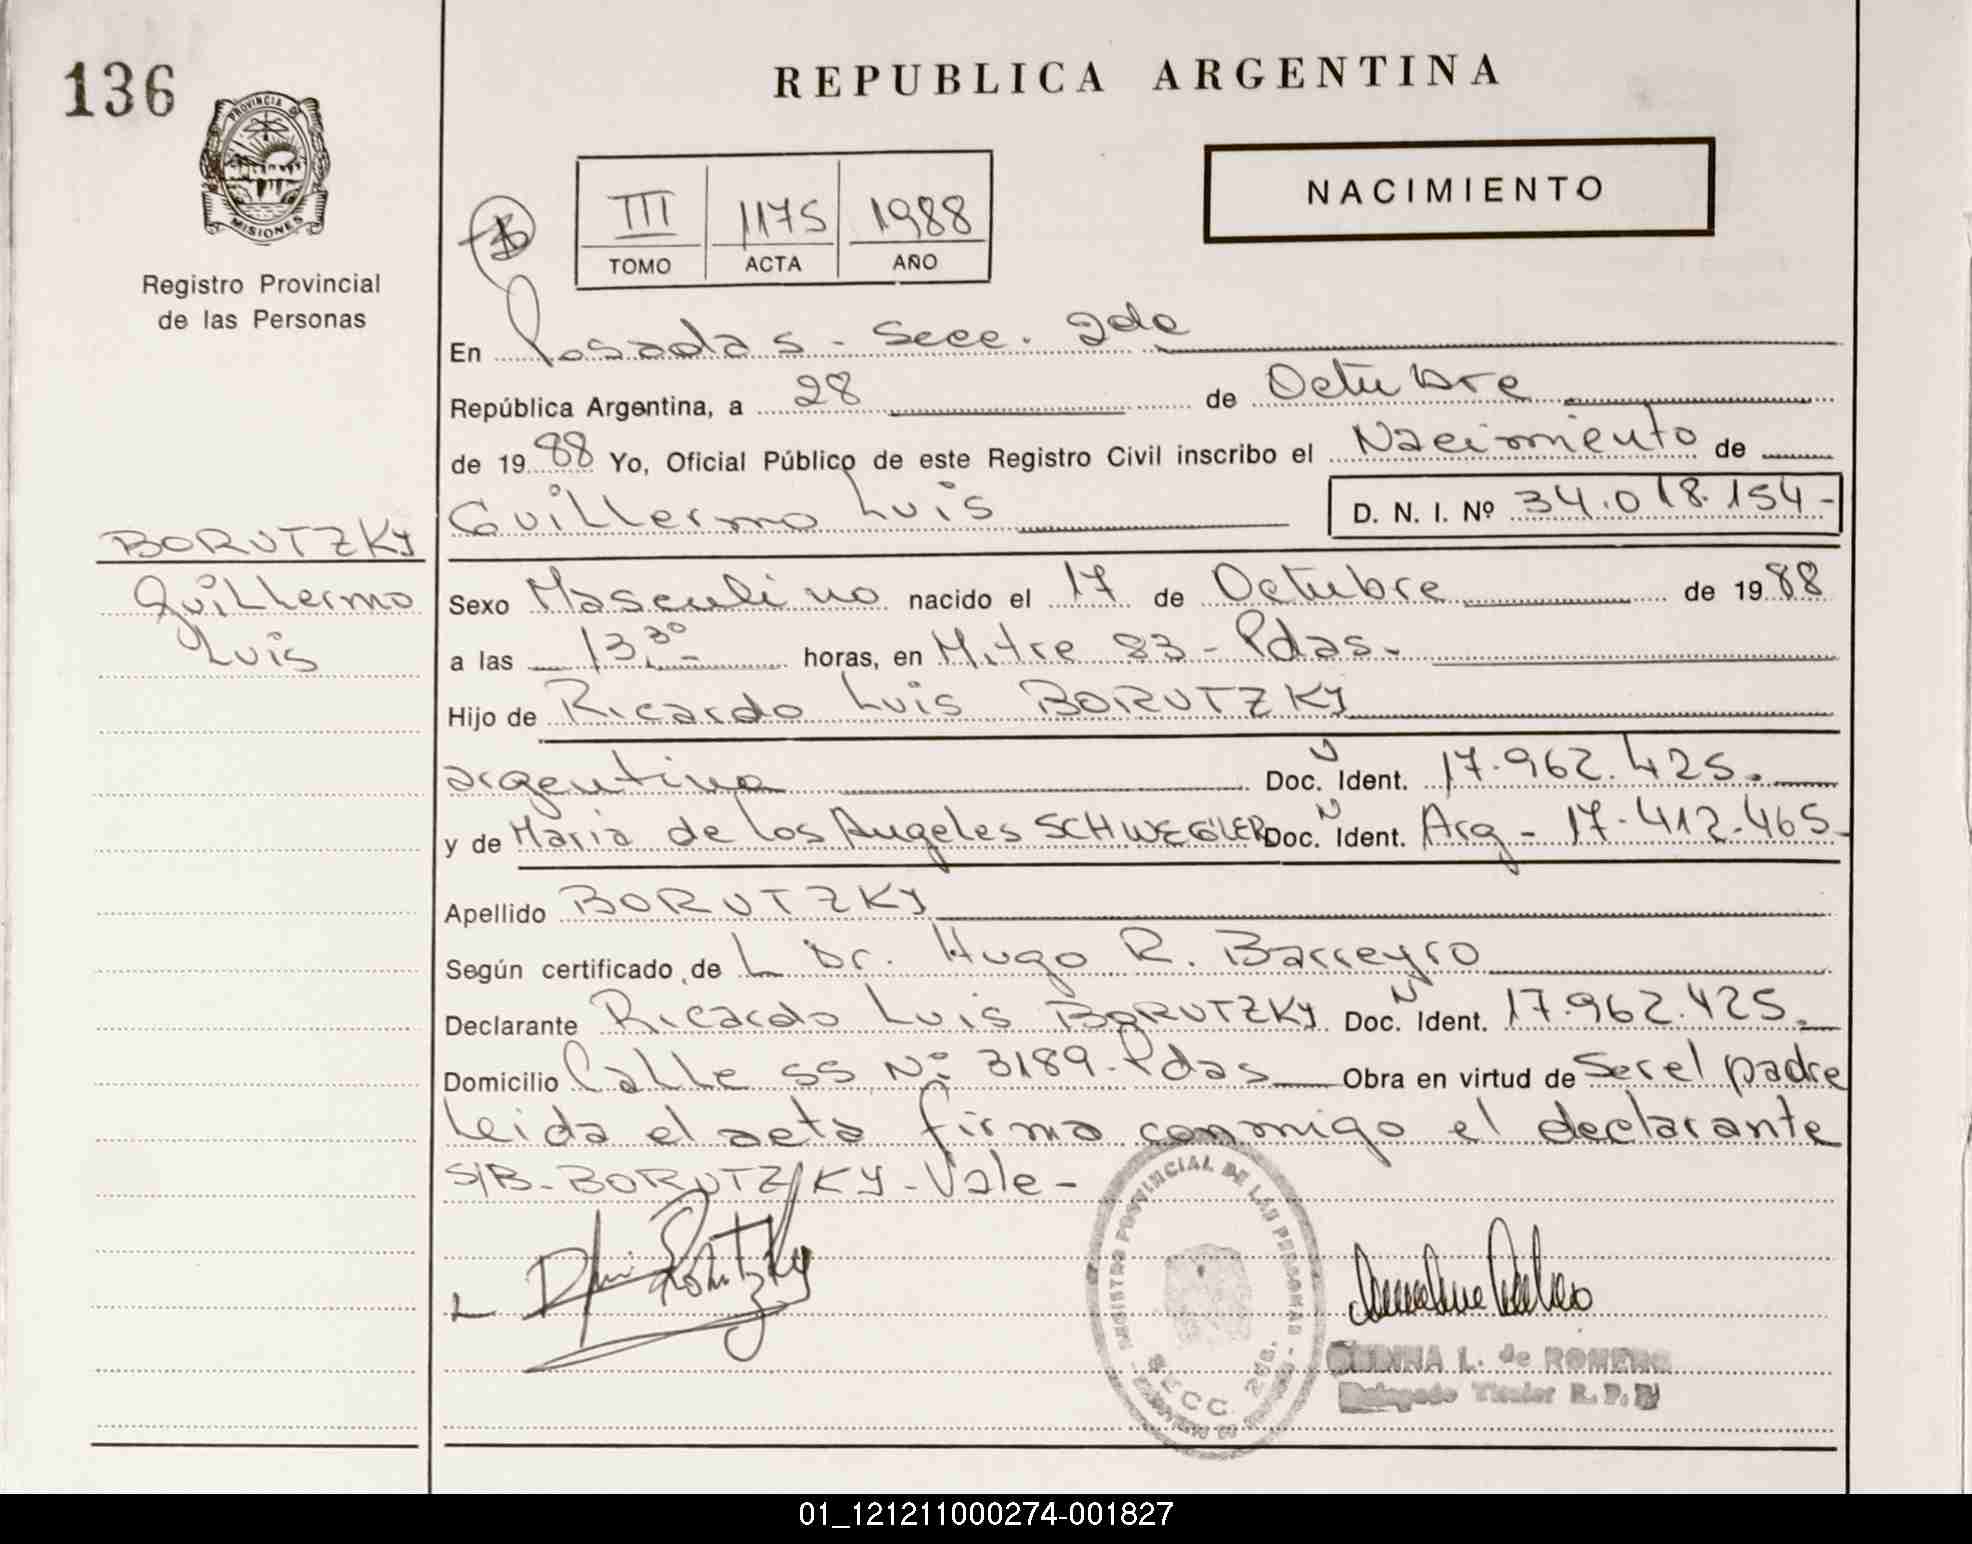 136
PROVINCIA DE
MISIONES
Registro Provincial
de las Personas
BORUTZKY
Guillermo
Luis
REPUBLICA ARGENTINA
NACIMIENTO
III 1175 1988
TOMO ACTA AÑO
En Posadas - Secc. 2da
República Argentina, a 28 de Octubre
de 1988 Yo, Oficial Público de este Registro Civil inscribo el Nacimiento de
Guillermo Luis D. N. I. Nº 34.018.154-
Sexo Masculino nacido el 17 de Octubre de 1988
a las 13,30- horas, en Mitre 83 - Pdas.
Hijo de Ricardo Luis BORUTZKY
argentino Doc. N Ident. 17.962.425.
y de Maria de los Angeles SCHWEGLER Doc. N Ident. Arg - 17.412.465-
Apellido BORUTZKY
Según certificado de L Dr. Hugo R. Barreyro
Declarante Ricardo Luis BORUTZKY Doc. N Ident. 17.962.425.
Domicilio Calle 55 Nº 3189 - Pdas Obra en virtud de Ser el padre
Leida el acta firma conmigo el declarante
S/B - BORUTZKY - Vale -
REGISTRO PROVINCIAL DE LAS PERSONAS
SECC. 2da.
L. de ROMERO
Delegado Titular R. P.
01_121211000274-001827